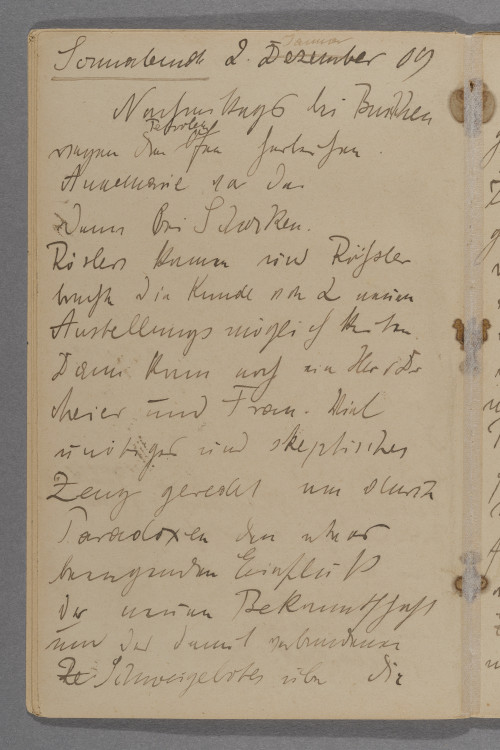 Sonnabend 2. Dezember 09
Januar
Nachmittags bei
wegen den Petroleum Ofen
Annemarie war da
Dann bei Schocken.
Röslers kamen und Rößler
bracht die Kunde von 2 neuen
Ausstellungsmöglichkeiten.
Dann kam noch ein Herr Dr
Meier und Frau. Viel
unnötiges und skeptisches
Zeug geredet um durch
Paradoxen den etwas
beengenden Einfluß
der neuen Bekanntschaft
und der damit verbundenen
Schweigebotes über die